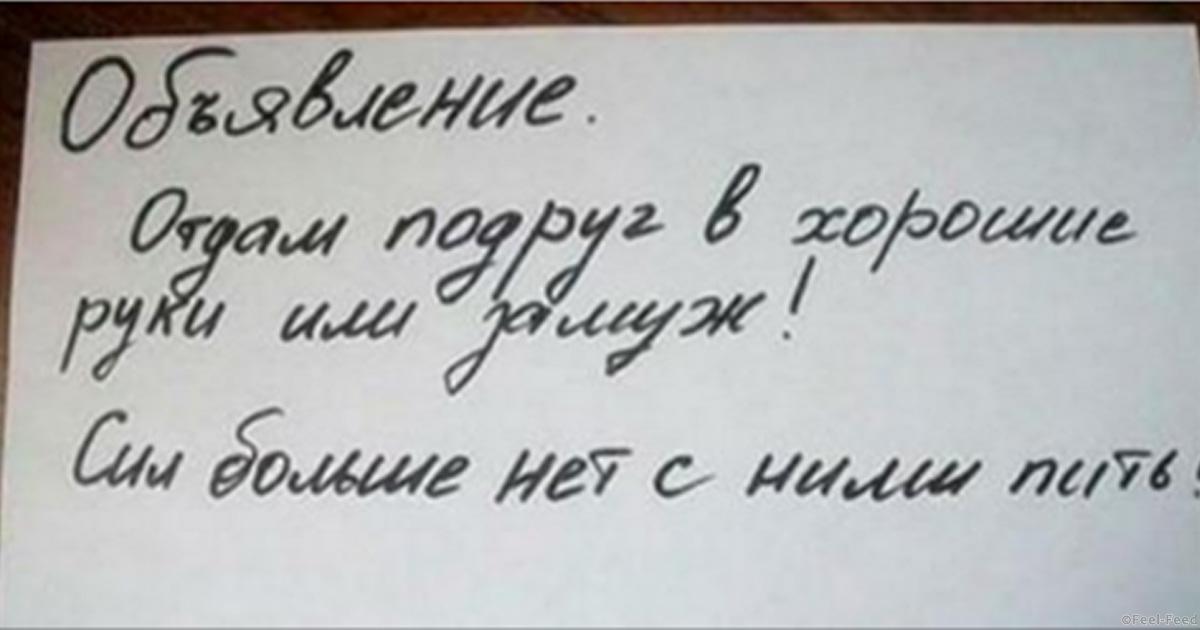 Объявление.
Отдам подруг в хорошие
руки или замуж!
Сил больше нет с ними пить
©Feel-Feed